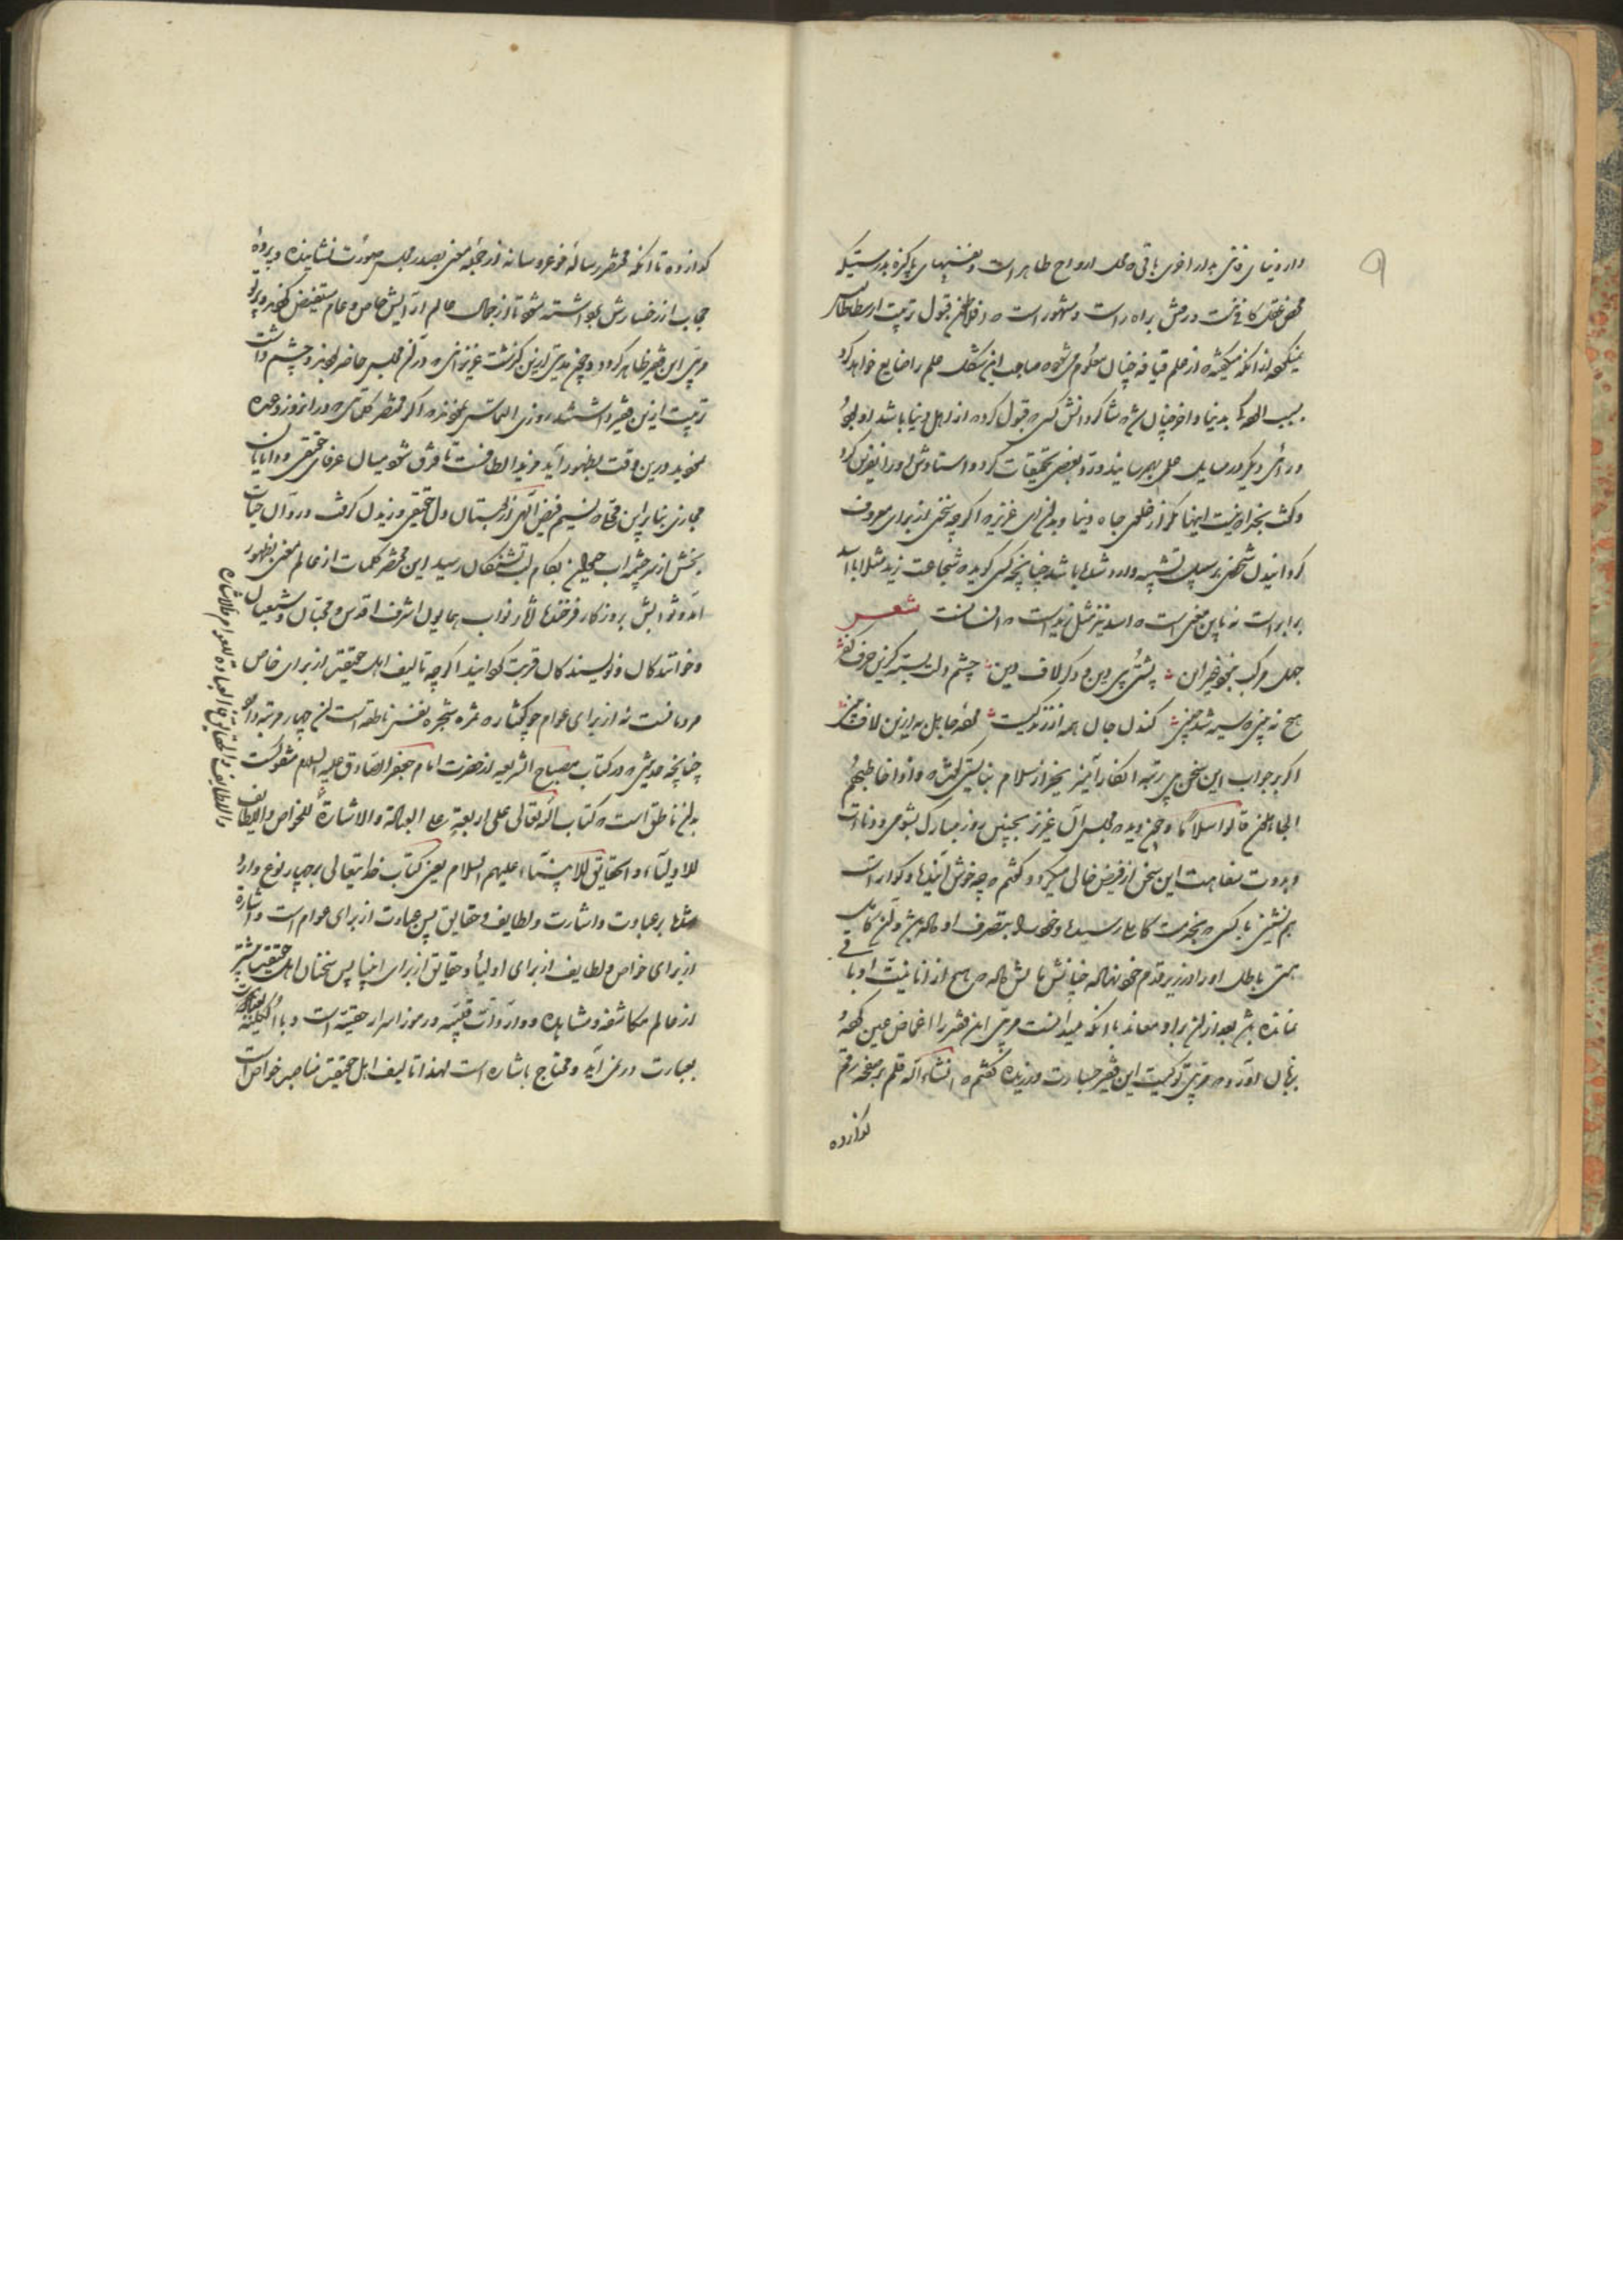 دار دنیای فانی بدار اخروی باقی که محل ارواح طاهر است و نفسهای پاکیزه بدرستیکه
محض عقل کافی نیست در مشی براه راست و مشهور است که افلاطن قبول تربیت ارسطاطالیس
نمیکرد از آنکه میگفته که از علم قیافه چنان معلوم میشود که صاحب این شکل علم را ضایع خواهد کرد
بسبب
و آخر چنان شد که شاگرد
کس که قبول کرد که از اهل دنیا باشد
در
دیگر در مسایل علمی بهم رسانیدند و بعضی تحقیقات کرد و استادش او را نفرین کرد
و گفت بخدا نیست اینها مگر از ظلمت جاه دنیا و بدان ای عزیز که اگر چه سخنی از برای معروف
گردانیدن شخصی بر سبیل تشبیه وارد شده باشد چنانچه کسی گوید که شجاعت زید مثلا با اسد
برابر است نه باین معنی است که اسد نیز مثل زید است که انسانست شعر
جهل مرکب
خران پشت پی دین و دگر لاف دین چشم دلت بسته کزین حرف
هیچ نه
سیه شد
کندن جان همه اندر
جاهل به ازین لاف
اگر بجواب این سخن بی رتبه انکار آمیز بجز از سلام نبایستی گفت که و اذا خاطبهم
الجاهلون قالوا سلاما و چون دید که مجلس آن عزیز بچنین روز مبارک
و برودت سفاهت این سخن از فیض خالی میگردد گفتم که چه خوش آینده و گواراست
هم نشینی با کسی که بخدمت کاملی رسیده و خود را بتصرف او داده باشد و آن کامل
هستی باطل او را در زیر قدم خود نهاده چنانش مالش داده که هیچ از انانیت او باقی
نمانده باشد بعد از آن برادر معاند با آنکه میدانست مربی این فقیر را اغماض عین کرده
بزبان آورد که مربی تو کیست این فقیر جسارت ورزیده گفتم که انشاء الله قلم بر صفحه رقم
گذارده
گذارده تا آنکه مختصر رساله
عروسانه از حجله معنی بصدر مجلس صورت نشانیده و پرده
حجاب از رخسارش برداشته شود تا از جمال عالم آرایش خاص و عام مستفیض گردند و پرتو
مربی این فقیر ظاهر گردد و چون مدتی ازین گذشت عزیزانی که در آن مجلس حاضر بودند و چشم داشت
تربیت ازین فقیر داشتند روزی التماس نمودند که اگر مختصر کلماتی که در آن روز وعده
نمودید درین وقت بظهور آید مزید الطافست تا فرق شود میان عرفان حقیقی و دانایان
مجازی بنابر این وقتی که نسیم فیض الهی از گلستان دل حقیقی وزیدن گرفت و زلال حیات
بخش از سرچشمه آب حیوان بکام لب تشنگان رسید این مختصر کلمات از عالم معنی بظهور
آمد و ثوابش بروزگار فرخنده آثار نواب همایون اشرف اقدس و محبان و شیعیان
و خوانندگان و نویسندگان قربت گردانید اگر چه تالیف اهل حقیقی از برای خاص
مردمانست نه از برای عوام چو گفتار که ثمره شجره نفس ناطقه است آن چهار مرتبه دارد
چنانچه حدیثی که در کتاب مصباح الشریعه از حضرت امام جعفر الصادق علیه السلام منقولست
بدان ناطق است که کتاب الله تعالی علی اربعة علی العبارة والاشارة للخواص واللطایف
للاولیاء والحقایق للانبیاء علیهم السلام یعنی کتاب خدا تعالی بر چهار نوع وارد
شده بر عبارت و اشارت و لطایف و حقایق پس عبارت از برای عوام است و اشارة
از برای خواص و لطایف از برای اولیا و حقایق از برای انبیا پس سخنان اهل حقیقت بیشتر
از عالم مکاشفه و مشاهده و واردات قلبیه و رموز اسرار حقیقیه است و با
بعبارت در نمی آید و محتاج باشاره است لهذا تالیف اهل حقیقت مناسب خواص است
واللطایف والحقایق فالعبارة للعوام والاشارة